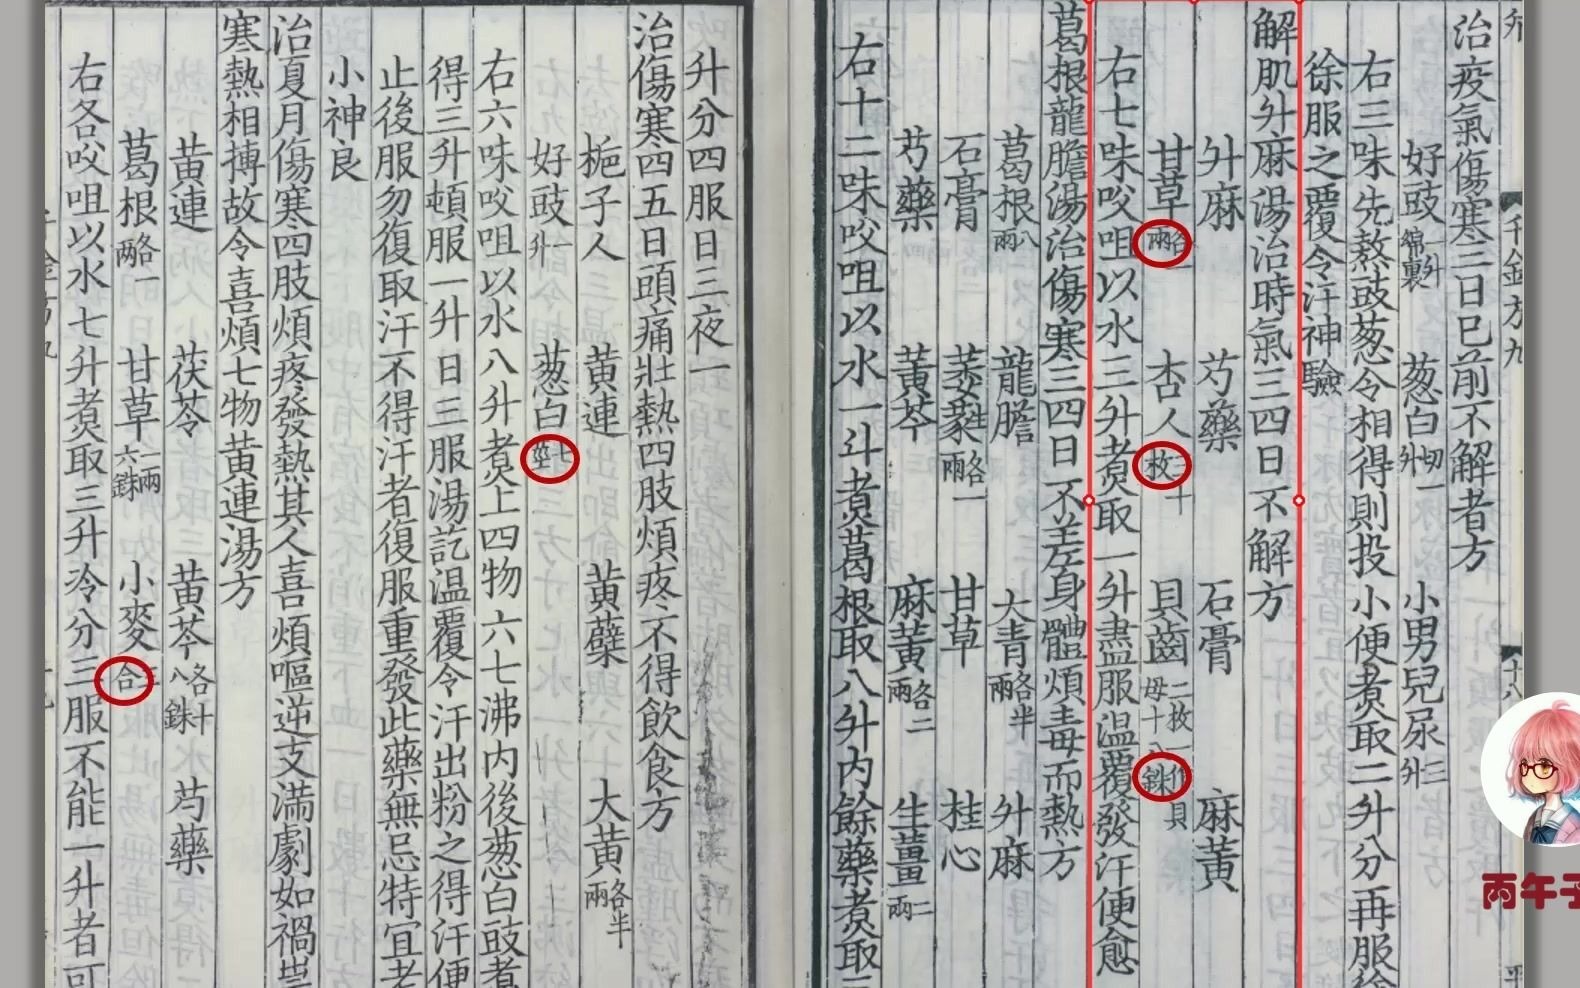 治疫氣傷寒三日已前不解者方
好豉一升綿裹 葱白切一升 小男兒尿三升
右三味先熬豉葱令相得則投小便煮取二升分再服徐
徐服之覆令汗神驗
解肌升麻湯治時氣三四日不解方
升麻 芍藥 石膏 麻黄
甘草各一兩 杏人三十枚 貝齒二枚一作貝母十八銖
右七味㕮咀以水三升煮取一升盡服温覆發汗便愈
葛根龍膽湯治傷寒三四日不差身體煩毒而熱方
葛根八兩 龍膽 大青各半兩 升麻
石膏 葳蕤各一兩 甘草 桂心
芍藥 黄芩 麻黄各二兩 生薑二兩
右十二味㕮咀以水一斗煮葛根取八升内餘藥煮取三
升分四服日三夜一
治傷寒四五日頭痛壯熱四肢煩疼不得飲食方
梔子人 黄連 黄蘗 大黄各半兩
好豉一升 葱白七莖
右六味㕮咀以水八升煮上四物六七沸内後葱白豉煮
得三升頓服一升日三服湯訖温覆令汗出粉之得汗便
止後服勿復取汗不得汗者復服重發此藥無忌特宜老
小神良
治夏月傷寒四肢煩疼發熱其人喜煩嘔逆支滿劇如禍祟
寒熱相搏故令喜煩七物黄連湯方
黄連 茯苓 黄芩各十八銖 芍藥
葛根各一兩 甘草一兩六銖 小麥三合
右各㕮咀以水七升煮取三升冷分三服不能一升者可
千金方九
十八
丙午子